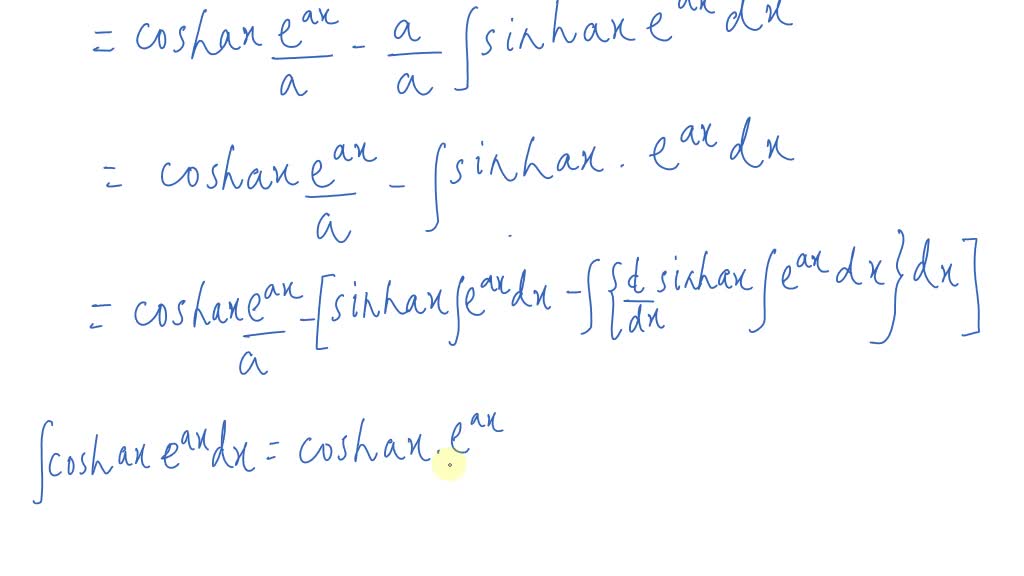 = coshax e^{ax}/a - a/a ∫sinhax e^{ax} dx
= coshax e^{ax}/a - ∫sinhax . e^{ax} dx
= coshax e^{ax}/a - [sinhax ∫e^{ax}dx - ∫{d/dx sinhax ∫e^{ax} dx} dx]
∫coshax e^{ax}dx = coshax . e^{ax}